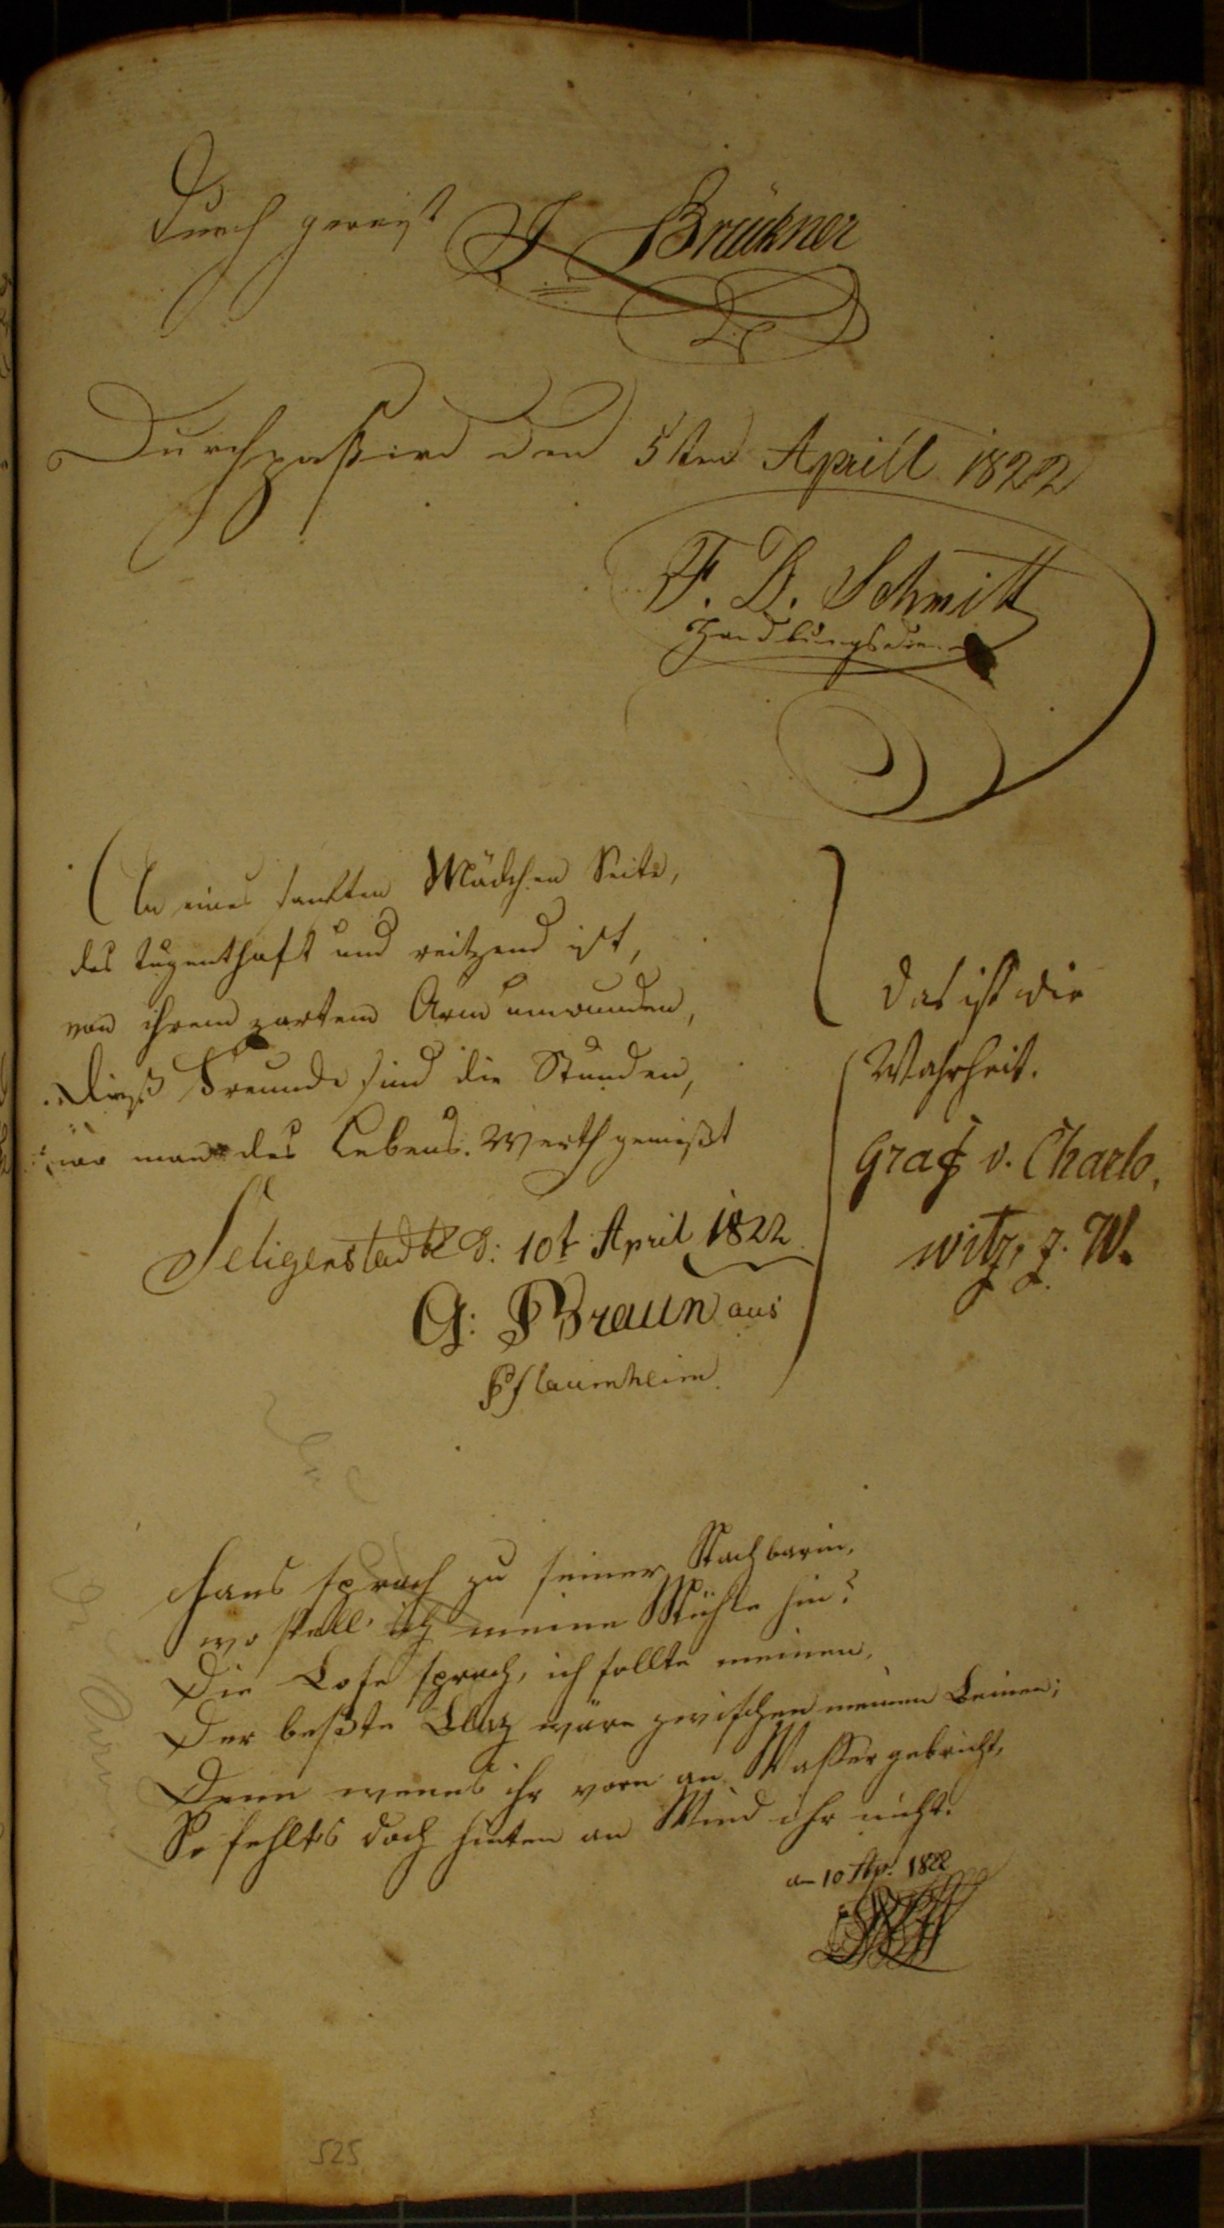 Durch gereist J. Brückner
Durchpaßird den 5ten Aprill 1822
F. D. Schmitt
Handlungsdie.
An eines sanften Mädchen Seite,
das tugenthaft und reitzend ist,
von ihrem zartem Arm umwunden,
Dieß Freunde sind die Stunden,
wo man des Lebens Werth genießt
Seligenstadt d: 10t April 1822
G: Braun aus
Pflaumheim
Das ist die
Wahrheit.
Graf v. Charlo,
witz, z. W.
Hans sprach zu seiner Nachbarin,
wo stell' ich meine Mühle hin?
Die Lose sprach, ich sollte meinen,
Der beßte Platz wäre zwischen meinen Beinen;
Denn wenns ihr vorn an Wasser gebricht,
So fehlts doch hinten an Wind ihr nicht.
am 10 Ap. 1822
525